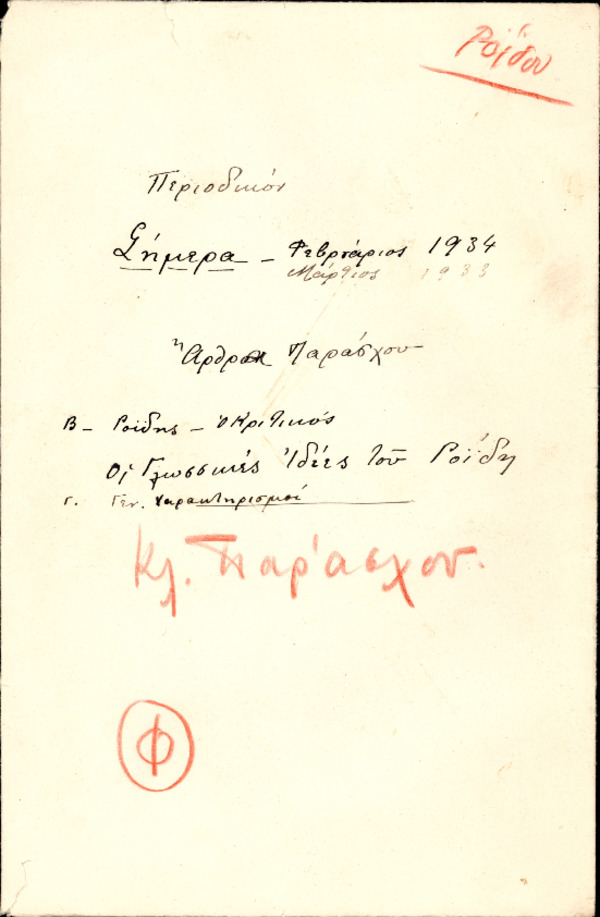 Ροΐδου
Περιοδικόν
Σήμερα – Φεβρουάριος 1934
Μάρτιος 1933
Ἄρθρα Παράσχου
Β – Ροΐδης – ὁ Κριτικός
Οἱ Γλωσσικές Ἰδέες τοῦ Ροΐδη
Γ. Γεν. Χαρακτηρισμοί
Κλ. Παράσχου.
Φ